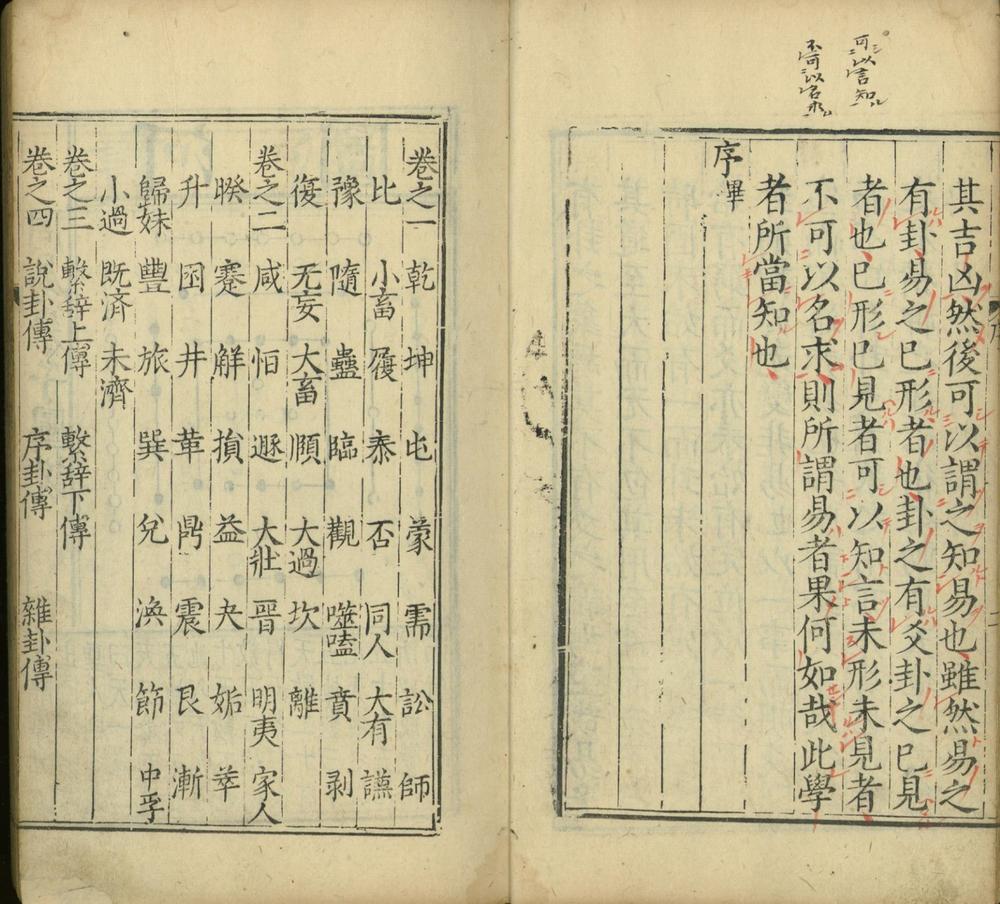 可以言知
不可以名求
其吉凶然後可以謂之知易也雖然易之
有卦易之已形者也卦之有爻卦之已見
者也已形已見者可以知言未形未見者
不可以名求則所謂易者果何如哉此學
者所當知也
序畢
卷之一 乾 坤 屯 蒙 需 訟 師
比 小畜 履 泰 否 同人 大有 謙
豫 隨 蠱 臨 觀 噬嗑 賁 剥
復 无妄 大畜 頤 大過 坎 離
卷之二 咸 恒 遯 大壯 晉 明夷 家人
睽 蹇 解 損 益 夬 姤 萃
升 困 井 革 鼎 震 艮 漸
歸妹 豐 旅 巽 兌 渙 節 中孚
小過 既済 未濟
卷之三 繫辞上傳 繫辞下傳
卷之四 說卦傳 序卦傳 雜卦傳